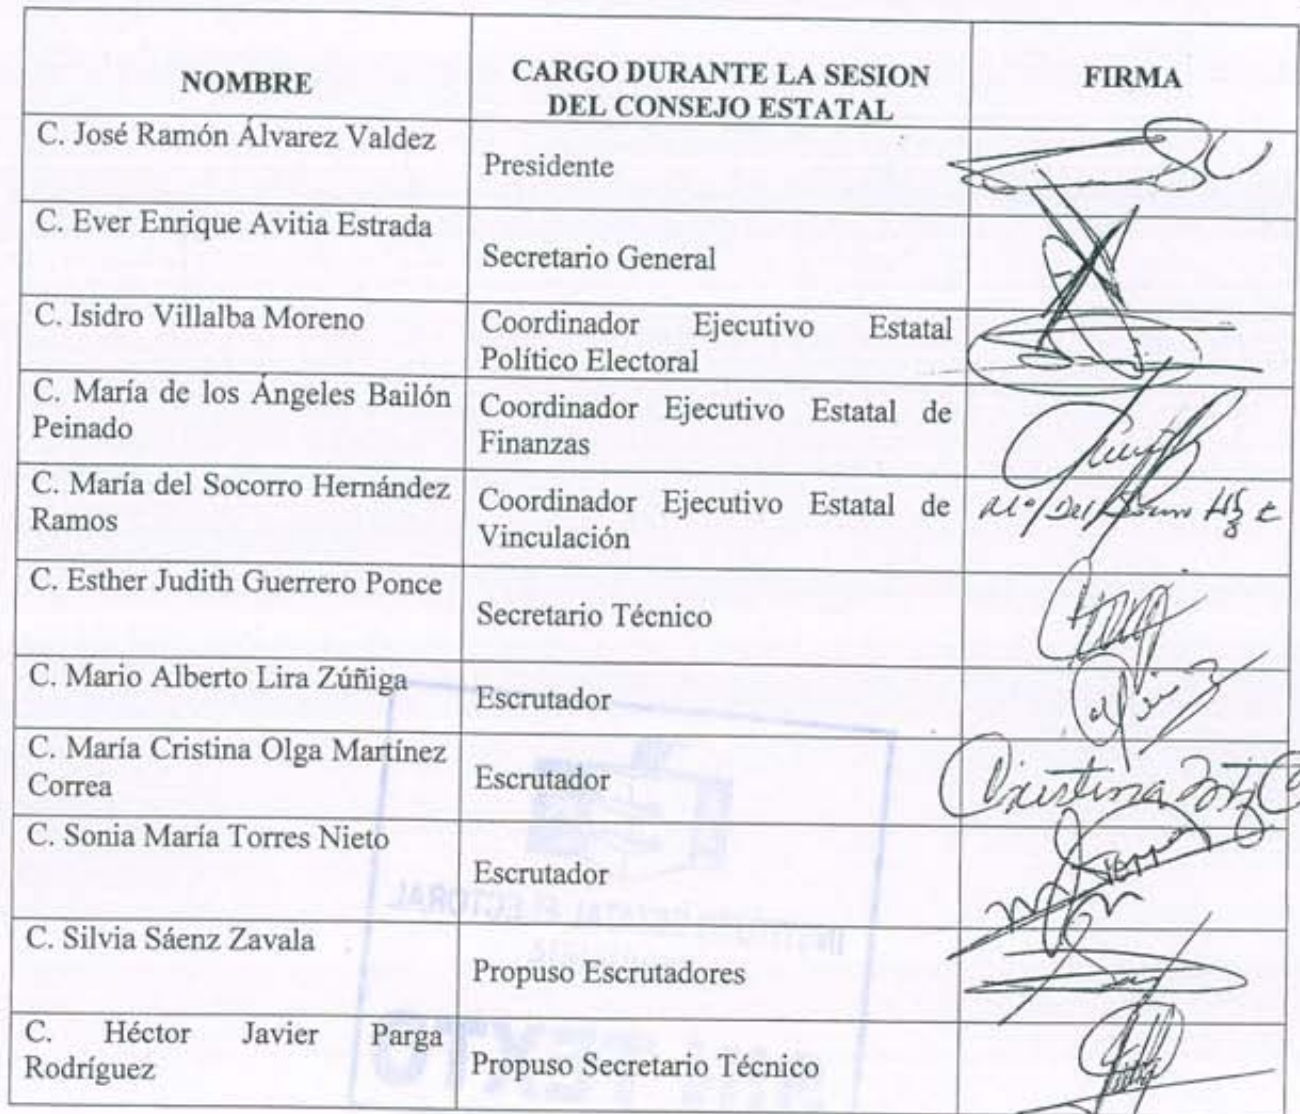 NOMBRE
CARGO DURANTE LA SESION
DEL CONSEJO ESTATAL
FIRMA
C. José Ramón Álvarez Valdez
Presidente
C. Ever Enrique Avitia Estrada
Secretario General
C. Isidro Villalba Moreno
Coordinador Ejecutivo Estatal
Político Electoral
C. María de los Ángeles Bailón
Peinado
Coordinador Ejecutivo Estatal de
Finanzas
C. María del Socorro Hernández
Ramos
Coordinador Ejecutivo Estatal de
Vinculación
C. Esther Judith Guerrero Ponce
Secretario Técnico
C. Mario Alberto Lira Zúñiga
Escrutador
C. María Cristina Olga Martínez
Correa
Escrutador
Cristina Mtz C
C. Sonia María Torres Nieto
Escrutador
C. Silvia Sáenz Zavala
Propuso Escrutadores
C. Héctor Javier Parga
Rodríguez
Propuso Secretario Técnico
INSTITUTO ESTATAL ELECTORAL
SIN TEXTO